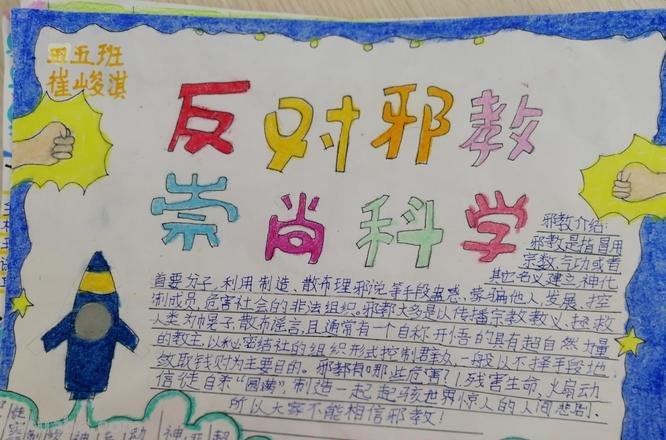 四五班
崔峻淇
反对邪教
崇尚科学
邪教介绍:
邪教是指冒用
宗教、气功或者
其它名义建立、神化
首要分子,利用制造、散布理邪说等手段蛊惑、蒙骗他人,发展、控
制成员,危害社会的非法组织。邪都大多是以传播宗教教义、拯救
人类为巾晃子,散布谣言,且通常有一个自称开悟的具有超自然力量
的教主,以秘密结社的组织形式控制群众,一般以不择手段地
敛取钱财为主要目的。邪教有哪些危害?1、残害生命,火扇动
信徒自杀“圆满”,制造一起起骇世界惊人的人间悲剧.
所以大家不能相信邪教!